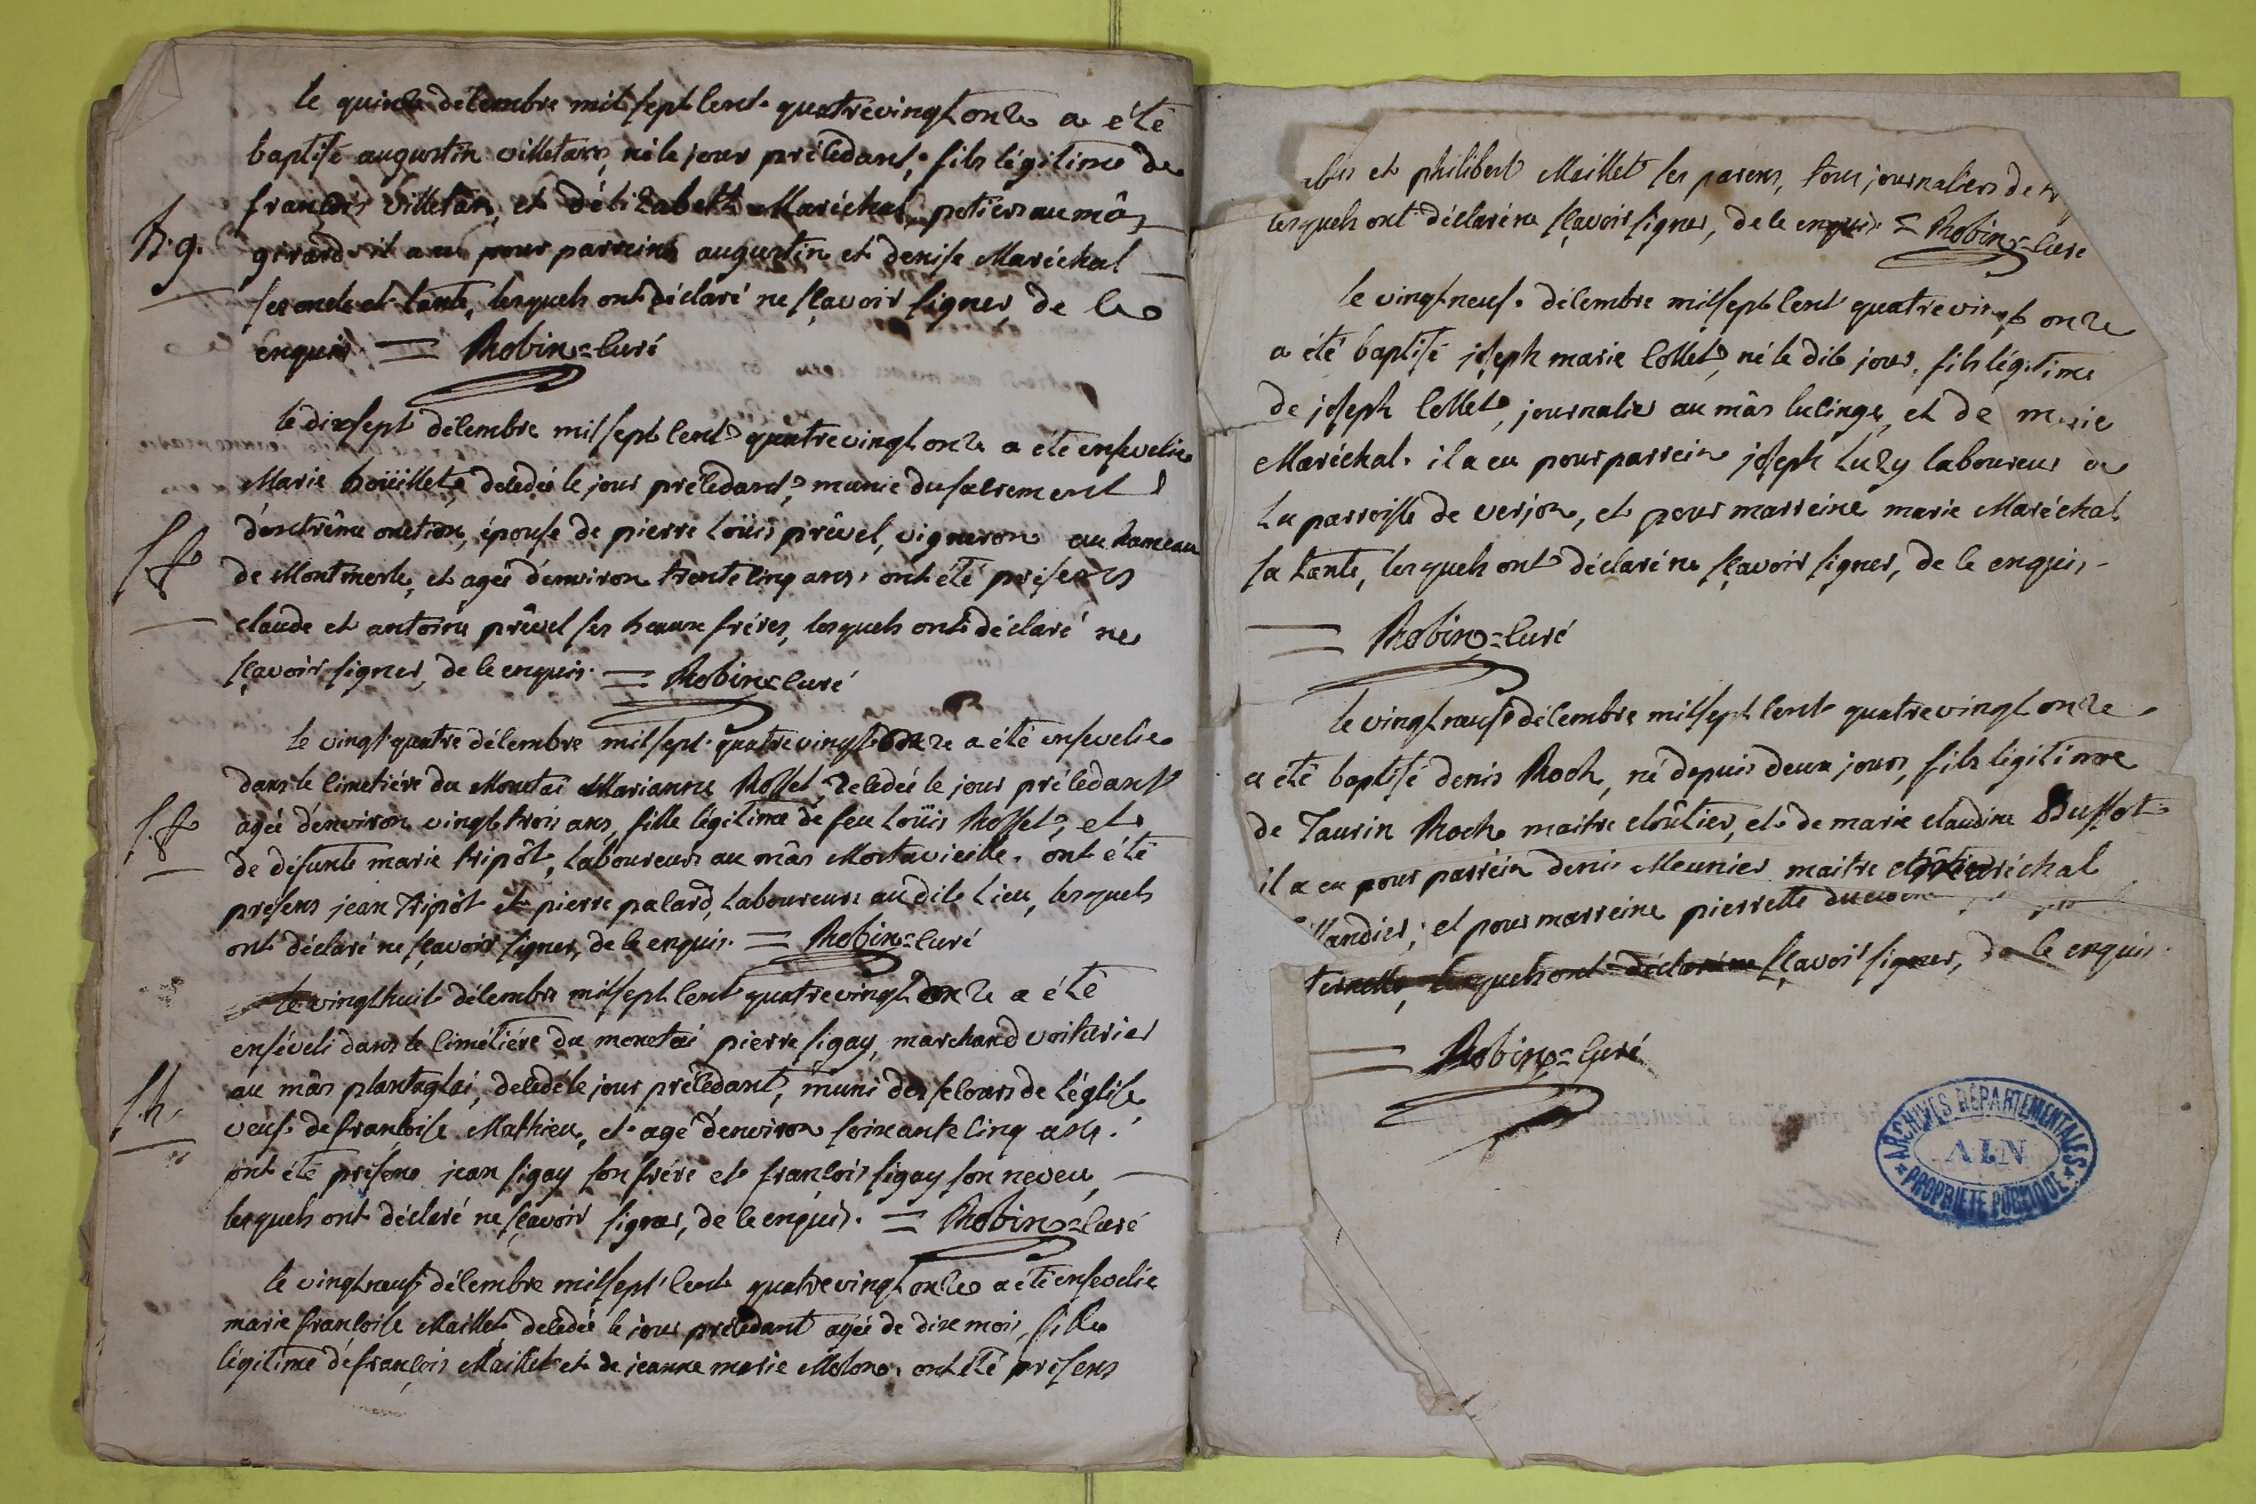 le quinze décembre mil sept cent quatrevingt onze a été
baptisé augustin villetan, né le jour précédant, fils légitime de
françois villetan, et d'élizabeth Maréchal, potiers au mâs
B. g.
girard il a eu pour parreins augustin et denise Maréchal
ses oncle et tante, lesquels ont déclaré ne sçavoir signer, de ce
enquis = Robin = curé
le dixsept décembre mil sept cent quatrevingt onze a été ensevelie
Marie boüillet, décédée le jour précédant, munie du sacrement
d'extrême onction, épouse de pierre Loüis prêvel, vigneron au hameau
S. f.
de Montmerle, et agée d'environ trente cinq ans. ont été présens
claude et antoine prêvel ses beaux fréres, lesquels ont déclaré ne
sçavoir signer, de ce enquis = Robin = curé
le vingt quatre décembre mil sept quatrevingt onze a été ensevelie
dans le cimetiére du Monetai Marianne Rosset, décédée le jour précédant
S. f.
agée d'environ vingt trois ans, fille légitime de feu Loüis Rosset, et
de défunte marie tripôt, Laboureurs au mâs Mortavieille. ont été
présens jean Tripôt et pierre palard, Laboureurs au dit Lieu, lesquels
ont déclaré ne sçavoir signer, de ce enquis = Robin = curé
le vingt huit décembre mil sept cent quatrevingt onze a été
enséveli dans le cimétiére du monetai pierre sigay, marchand voiturier
au mâs plantaglai, décédé le jour précédant, muni des secours de l'église
S. h.
veuf de françoise Mathieu, et agé d'environ soixante cinq ans.
ont été présens jean sigay son frére et françois sigay son neveu,
lesquels ont déclaré ne sçavoir signer, de ce enquis. = Robin = curé
le vingt neuf décembre mil sept cent quatrevingt onze a été ensevelie
marie françoise Maillet décédée le jour précédant agée de dix mois, fille
légitime de françois Maillet et de jeanne marie Molon. ont été présens
et philibert Maillet ses parens, tous journaliers de
lesquels ont déclaré ne sçavoir signer, de ce enquis = Robin = curé
le vingt neuf décembre mil sept cent quatrevingt onze
a été baptisé joseph marie Collet, né le dit jour, fils légitime
de joseph Collet, journalier au mâs lucinge, et de marie
Maréchal. il a eu pour parrein joseph Luzy laboureur a
La parroisse de verjon, et pour marreine marie Maréchal
sa tante, lesquels ont déclaré ne sçavoir signer, de ce enquis
= Robin = curé
le vingt neuf décembre mil sept cent quatrevingt onze
a été baptisé denis Roch, né depuis deux jours, fils légitime
de Taurin Roch maitre cloûtier, et de marie claudine Bussot
il a eu pour parrein denis Meunier maitre maréchal
; et pour marreine pierrette
lesquels ont déclaré ne sçavoir signer, de ce enquis
= Robin = curé
ARCHIVES DÉPARTEMENTALES
AIN
PROPRIÉTÉ PUBLIQUE